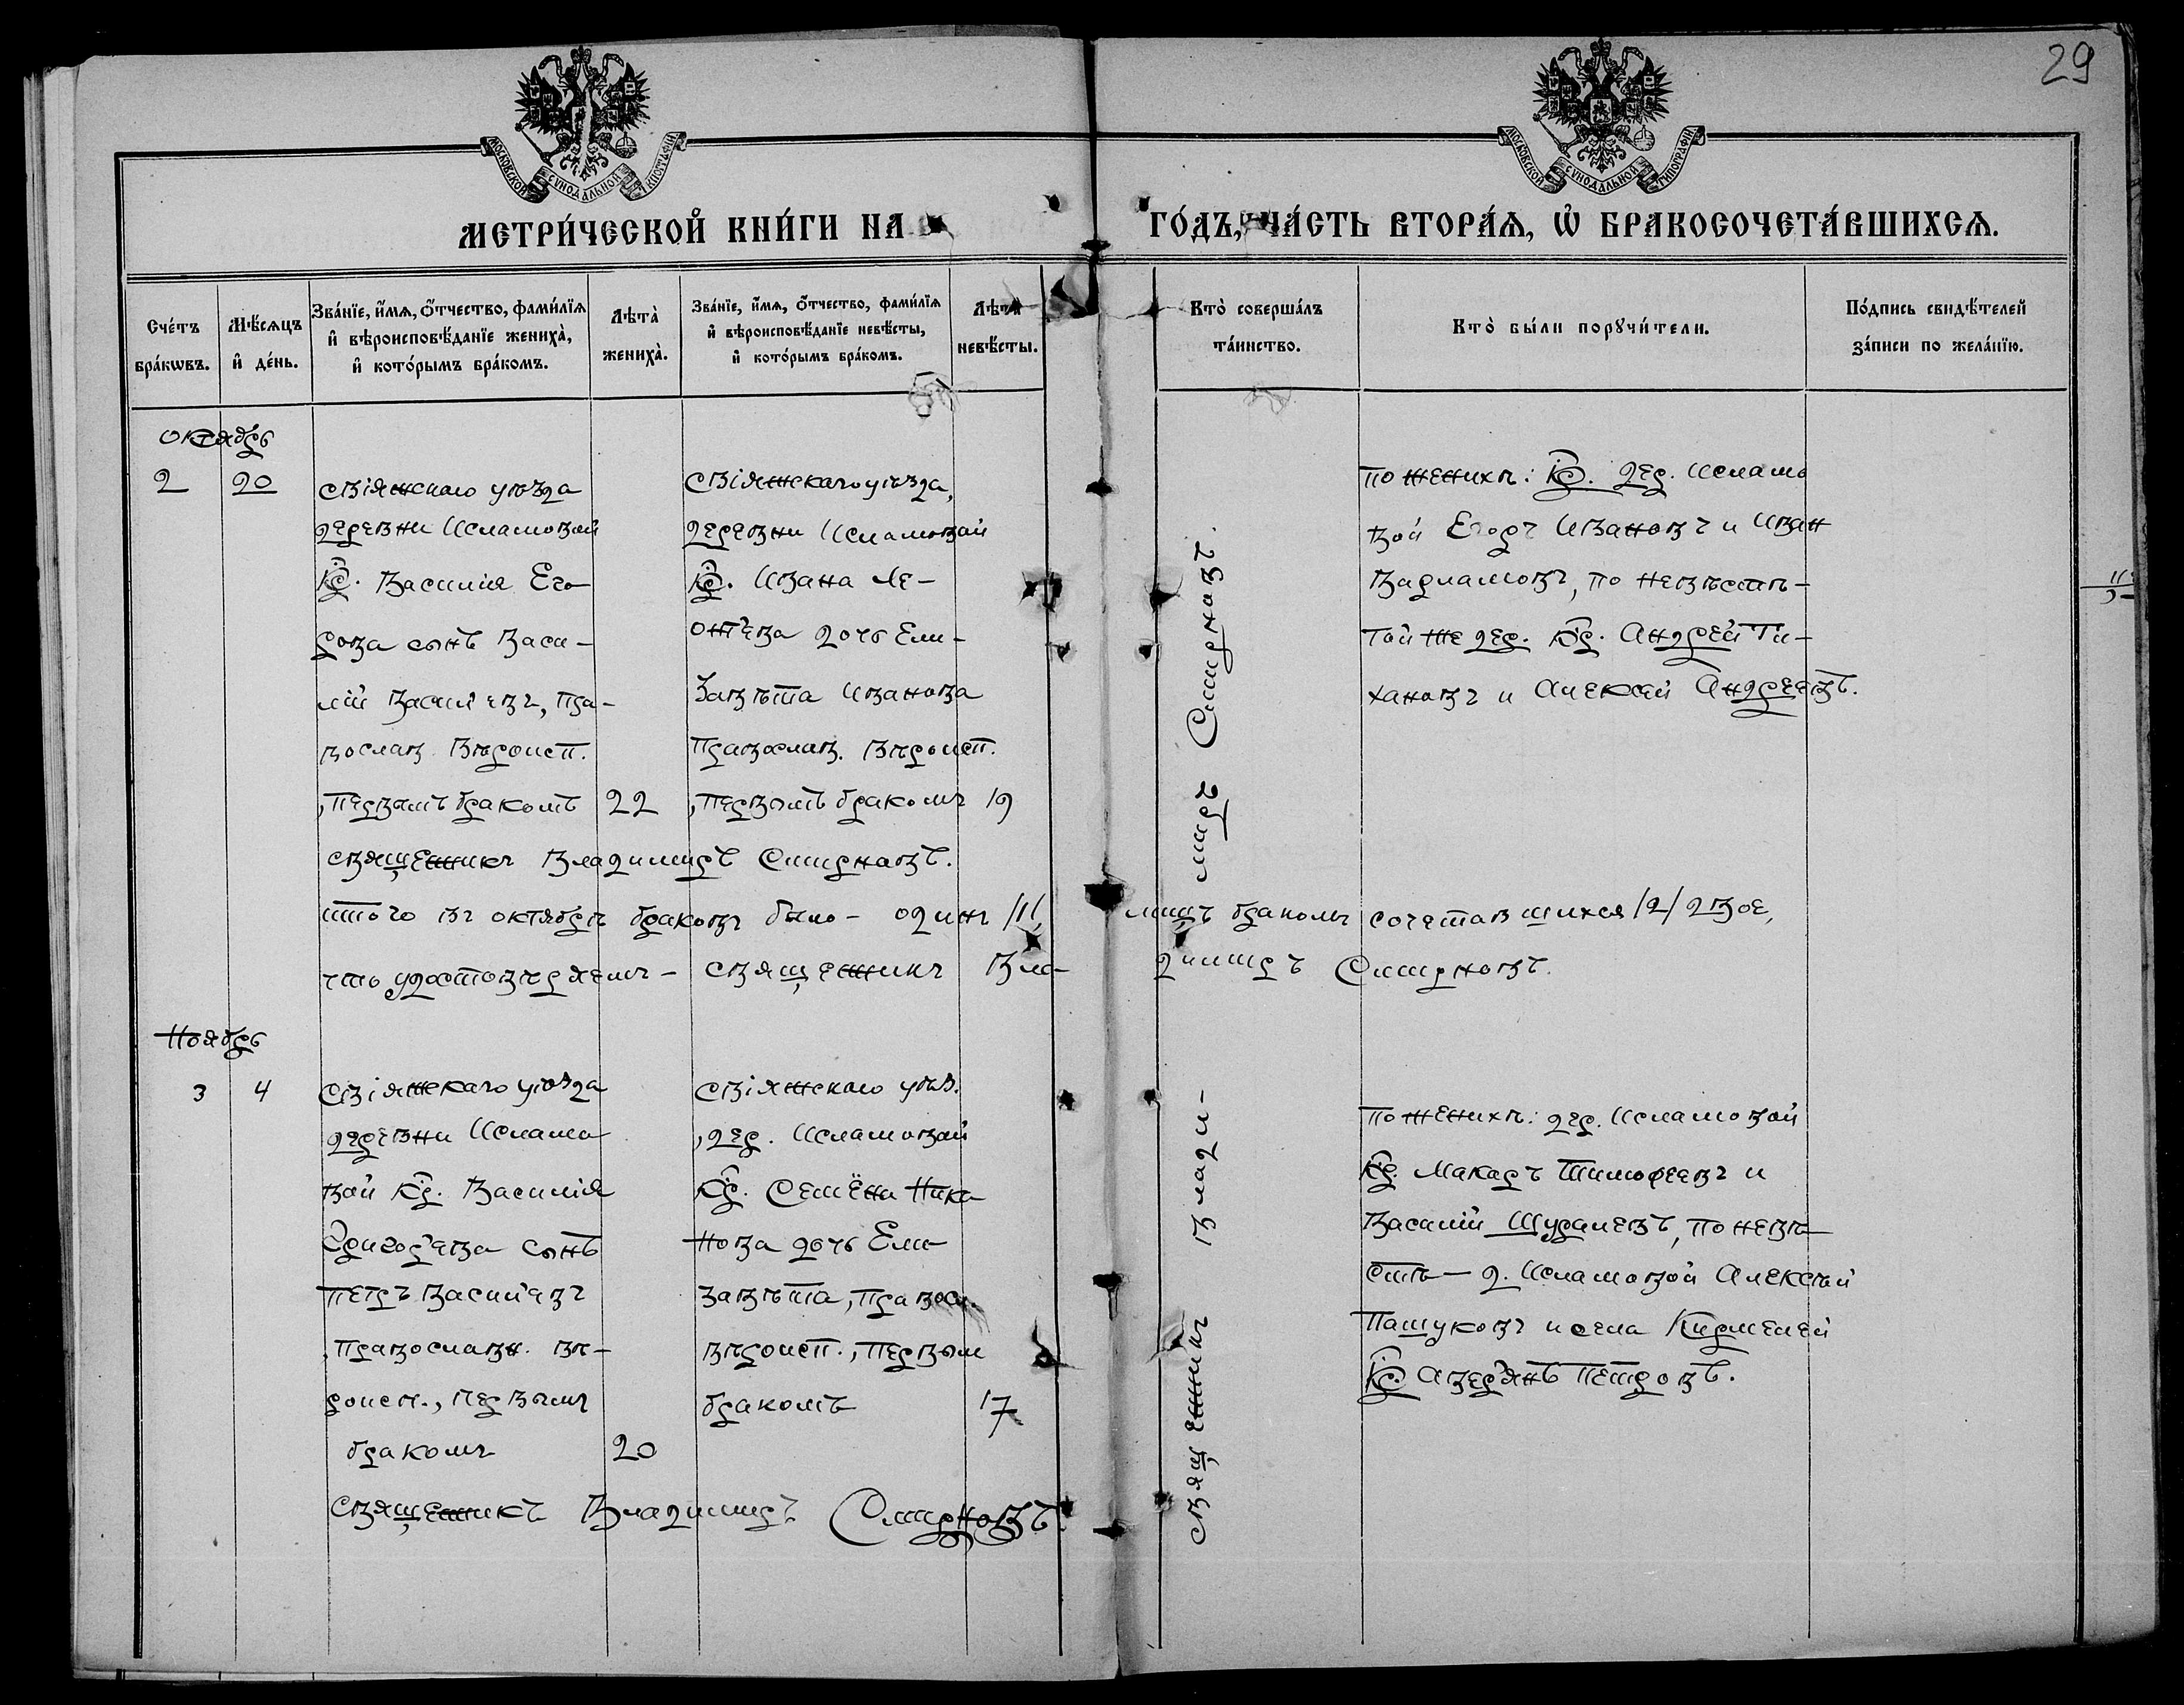 29
МОСКОВСКОЙ СѴНОДАЛЬНОЙ ТИПОГРАФІИ
МОСКОВСКОЙ СѴНОДАЛЬНОЙ ТИПОГРАФІИ
МЕТРИ́ЧЕСКОЙ КНИ́ГИ НА ГО́ДЪ, ЧА́СТЬ ВТОРА́Ѧ, Ѡ҆ БРАКОСОЧЕТА́ВШИХСѦ.
Сче́тъ бра́кѡвъ.
Мѣ́сѧцъ и҆ де́нь.
Зва́нїе, и҆́мѧ, ѻ҆́тчество, фами́лїѧ и҆ вѣроисповѣ́данїе жениха̀, и҆ кото́рымъ бра́комъ.
Лѣта̀ жениха̀.
Зва́нїе, и҆́мѧ, ѻ҆́тчество, фами́лїѧ и҆ вѣроисповѣ́данїе невѣ́сты, и҆ кото́рымъ бра́комъ.
Лѣта̀ невѣ́сты.
Кто̀ соверша́лъ та́инство.
Кто̀ бы́ли порꙋчи́тели.
По́дпись свидѣ́телей за́писи по жела́нїю.
октябрь
2
20
свіяжскаго уѣзда
деревни Исламовой
кр. Василия Его-
рова сынъ Васи-
лій Васильевъ, пра-
вослав. вѣроисп.
, первымъ бракомъ
22
свіяжскаго уѣзда,
деревни Исламовой
кр. Ивана Ле-
онтьева дочь Ели-
завѣта Иванова
православ. вѣроисп.
, первымъ бракомъ
19
по женихѣ: кр. дер. Исламо
вой Егоръ Ивановъ и Иван
Варламовъ, по невѣстѣ-
той же дер. кр. Андрей Ти-
хановъ и Алексѣй Андреевъ.
священникъ Владимиръ Смирновъ.
итого въ октябрѣ браковъ было - одинъ /1/, лицъ бракомъ сочетавшихся /2/ двое,
что удостовѣряемъ - священникъ Вла- димиръ Смирновъ.
Ноябрь
3
4
Свіяжскаго уѣзда
деревни Исламо
вой кр. Василия
Григорьева сынъ
Петръ Васильевъ
, православн. вѣ-
роисп., первымъ
бракомъ
20
свіяжскаго уѣз.
, дер. Исламовой
кр. Семёна Нико
нова дочь Ели
завѣта, правосл.
вѣроисп., первым
бракомъ
17
священникъ Влади- миръ Смирновъ.
по женихѣ: дер. Исламовой
кр. Макаръ Тимофеевъ и
Василій Шуралевъ, по невѣ
стѣ - д. Исламовой Алексѣй
Пашуковъ и села Кирмелей
кр. Аверьянъ Петровъ.
священникъ Владимиръ Смирновъ.